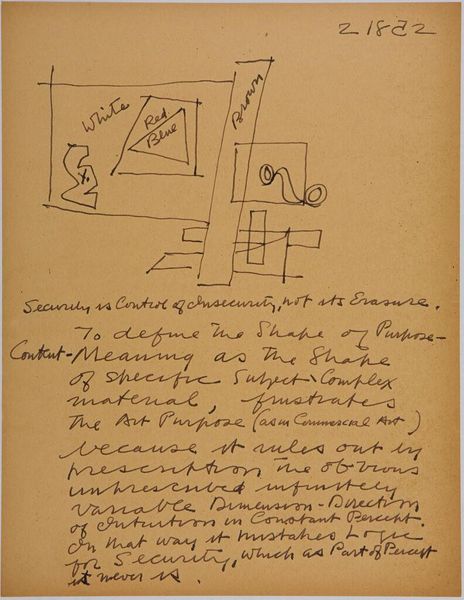 2 18 52
White
Red
Blue
Brown
X.
Security is Control of Insecurity, not its Erasure.
To define the Shape of Purpose-
Content-Meaning as the Shape
of specific Subject-Complex
material, frustrates
the Art Purpose (as in Commercial Art)
because it rules out by
prescription the obvious
unprescribed infinitely
variable Dimension-Direction
of Intuition in Constant Percept.
In that way it mistakes Logic
for Security, which as Part of Percept
it never is.